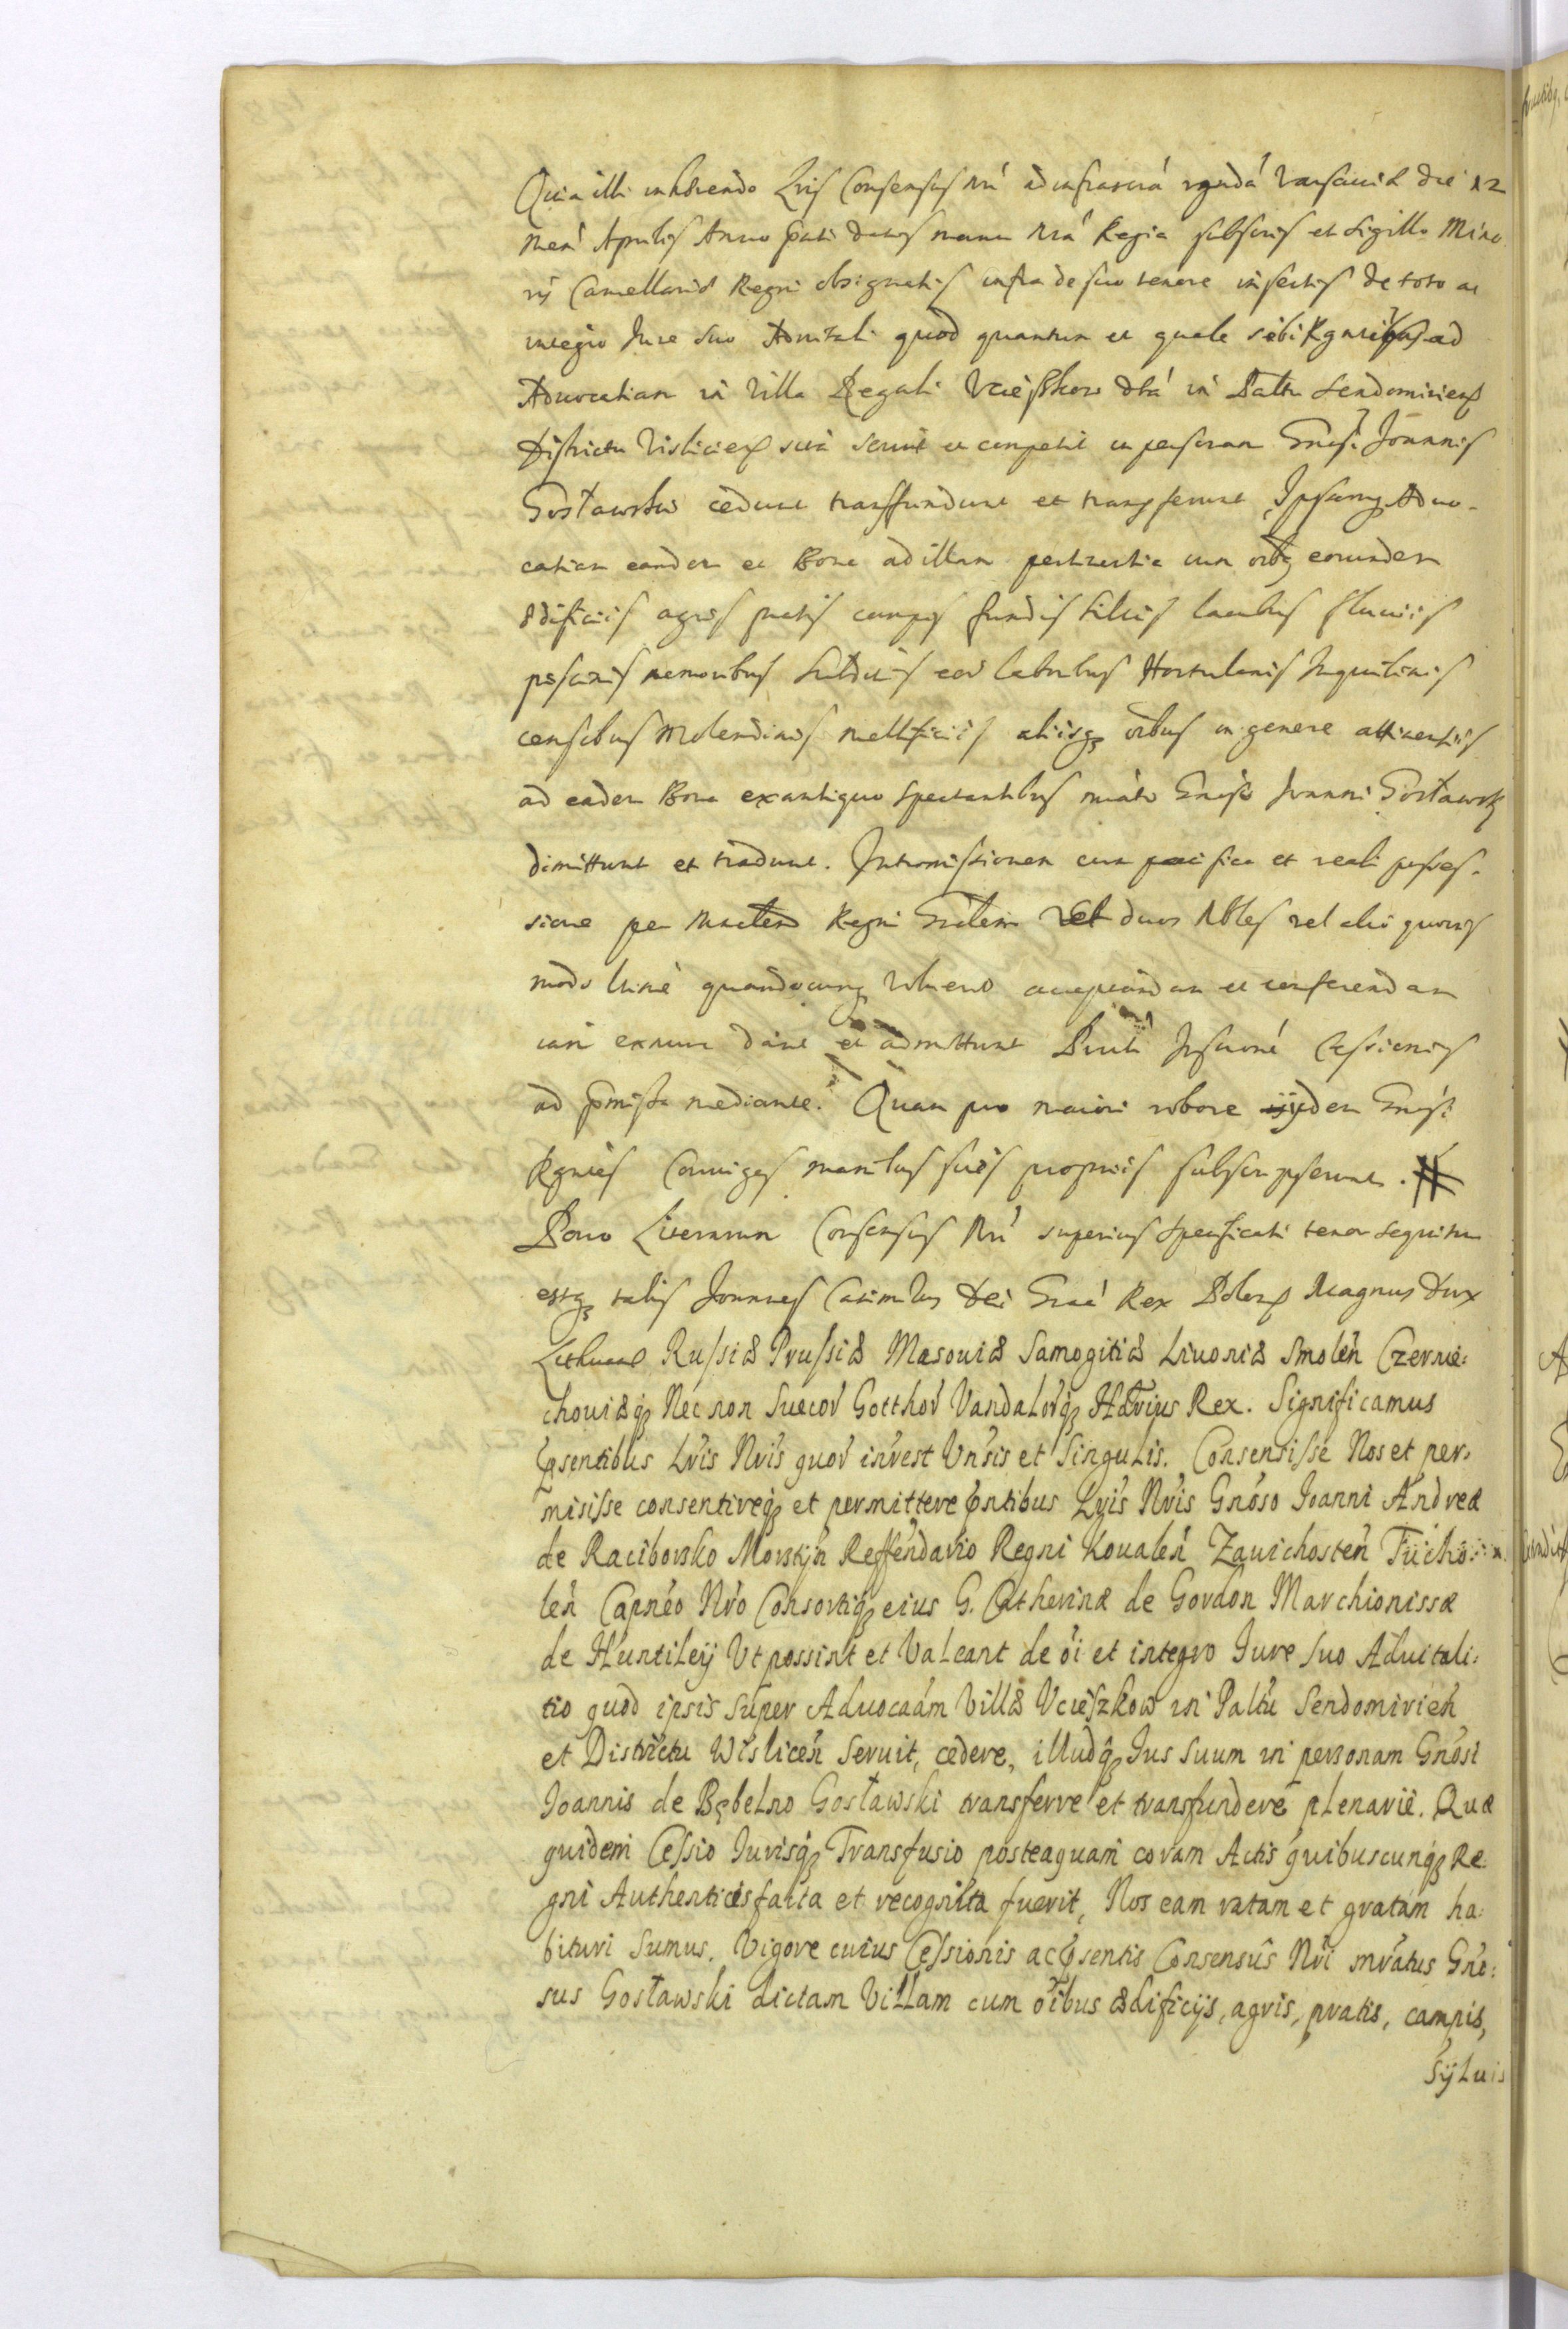 Quia illi inhærendo Lris Consensus Nri ad infrascrá Varsauiæ die 12
Mens Aprilis Anno datis manu Nrá Regia subscris et Sigillo Mino
ris Cancellariæ Regni obsignatis infra de suo tenore insertis de toto ac
integro Jure suo Aduitali quod quantum et quale sibi Rgnribus ad
Aduocatiam in Villa Regali Vcieszkow dtá in Pałtu Sendomiriens
Districtu Visliciens seruit et competit in personam Gnosi Joannis
Gosławski cedunt transfundunt et transferunt Ipsamq Aduo-
catiam eandem et Bona ad illam pertinentia cum oibq eorundem
ædificiis agris pratis campis fundis siluis lacubus fluuiis
piscinis nemoribus Subditis eor laboribus Hortulanis Inquilinis
censibus Molendinis mellificiis aliisq oibus in genere attinentiis
ad eadem Bona ex antiquo spectantibus mrato Gnoso Joanni Gosławsk
dimittunt et tradunt. Intromissionem cum pacifica et reali posses-
sione per Mnrlem Regni Grālem vel duos Nbles vel alio quouis
modo ltime quandocunq voluerit accipiendam et conferendam
iam exnunc dant et admittunt Pnti Inscrone Cessionis
ad pmissa mediante. Quam pro maiori robore iijdem Gnosi
Rgntes Coniuges manibus suis propriis subscripserunt. #
Porro Literarum Consensus Nri superius specificati tenor sequitur
estq talis Joannes Casimirus Dei Graá Rex Polonˢ Magnus Dux
Lithuanæ Russiæ Prussiæ Masouiæ Samogitiæ Liuoniæ Smolen̄ Czernie:
chouiæq Nec non Suecor̄ Gotthor̄ Vandalor̄q Hær̄ius Rex. Significamus
p̄sentibus Lris Nris quor̄ inr̄est Vnsis et Singulis. Consensisse Nos et per-
misisse consentireq et permittere p̄ntibus Lris Nris Gnoso Joanni Andreæ
de Raciborsko Morstijn Refferndario Regni Koualen̄ Zauichosten̄ Tucho:
len̄ Capneo Nro Consortiq eius G. Catherinæ de Gordon Marchionissæ
de Huntileij Vt possint et Valeant de oi et integro Iure suo Aduitali:
tio quod ipsis super Aduocaām Villæ Vcieszkow in Pałtu Sendomirien̄
et Districtu Wislicen̄ seruit, cedere, illudq Ius suum in personam Gnosi
Joannis de Bębelno Gosławski transferre et transfundere plenarie. Quæ
quidem Cessio Iurisq Transfusio posteaquam coram Actis quibuscunq Re:
gni Authenticis facta et recognita fuerit, Nos eam ratam et gratam ha:
bituri sumus. Vigore cuius Cessionis ac p̄sentis Consensus Nri mratus Gno:
sus Gosławski dictam Villam cum oibus ædificijs, agris, pratis, campis,
syluis